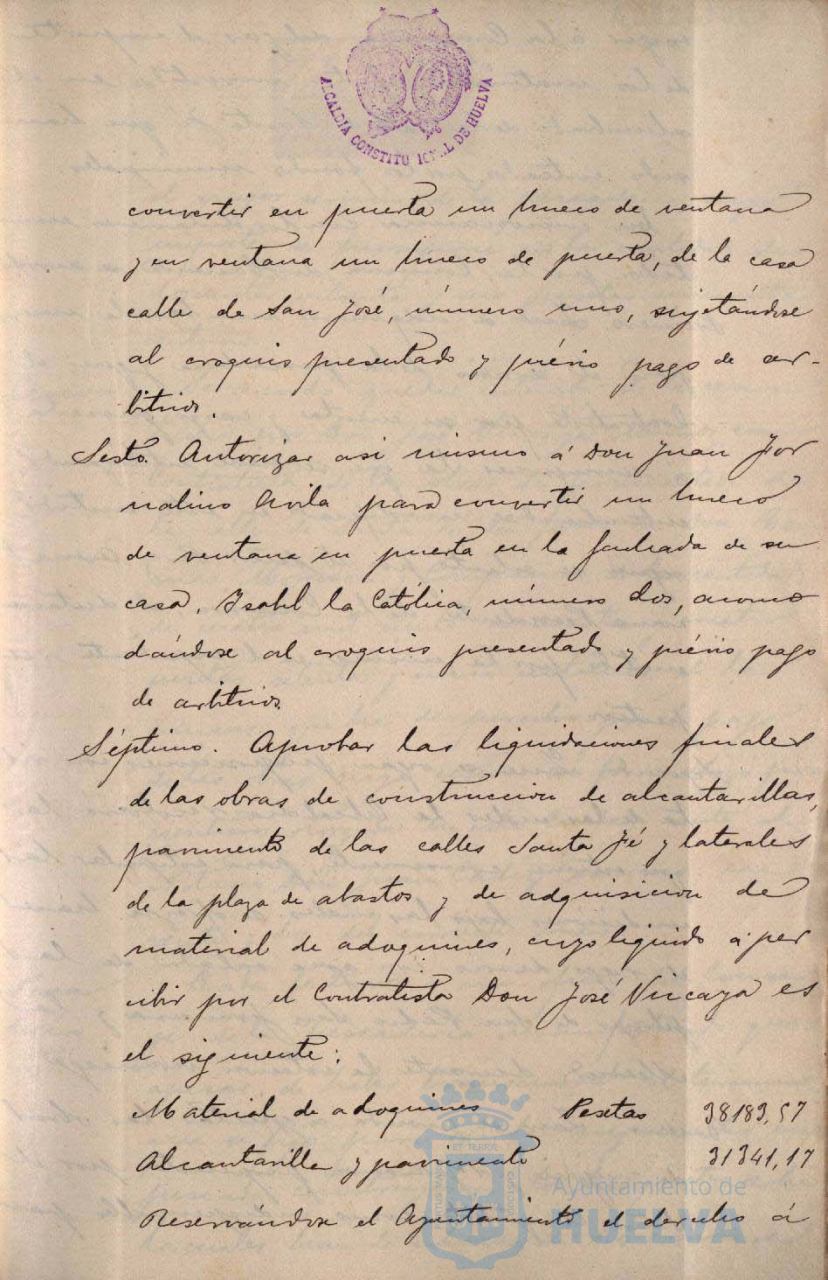 ALCALDIA CONSTITUCIONAL DE HUELVA
convertir en puerta un hueco de ventana
y en ventana un hueco de puerta, de la casa
calle de San José, número uno, sujetándose
al croquis presentado y prévio pago de ar-
bitrios.
Sesto. Autorizar asi mismo á Don Juan Jor
nalino Avila para convertir un hueco
de ventana en puerta en la fachada de su
casa, Isabel la Católica, número dos, acomo
dándose al croquis presentado y prévio pago
de arbitrios
Séptimo. Aprobar las liquidaciones finales
de las obras de construccion de alcantarillas,
pavimento de las calles Santa Fé y laterales
de la plaza de abastos y de adquisicion de
material de adoquines, cuyo liquido á per
cibir por el Contratista Don José Vizcaya es
el siguiente:
Material de adoquines Pesetas 38183,57
Alcantarilla y pavimento 31341,17
Reservándose el Ayuntamiento el derecho á
Ayuntamiento de
HUELVA